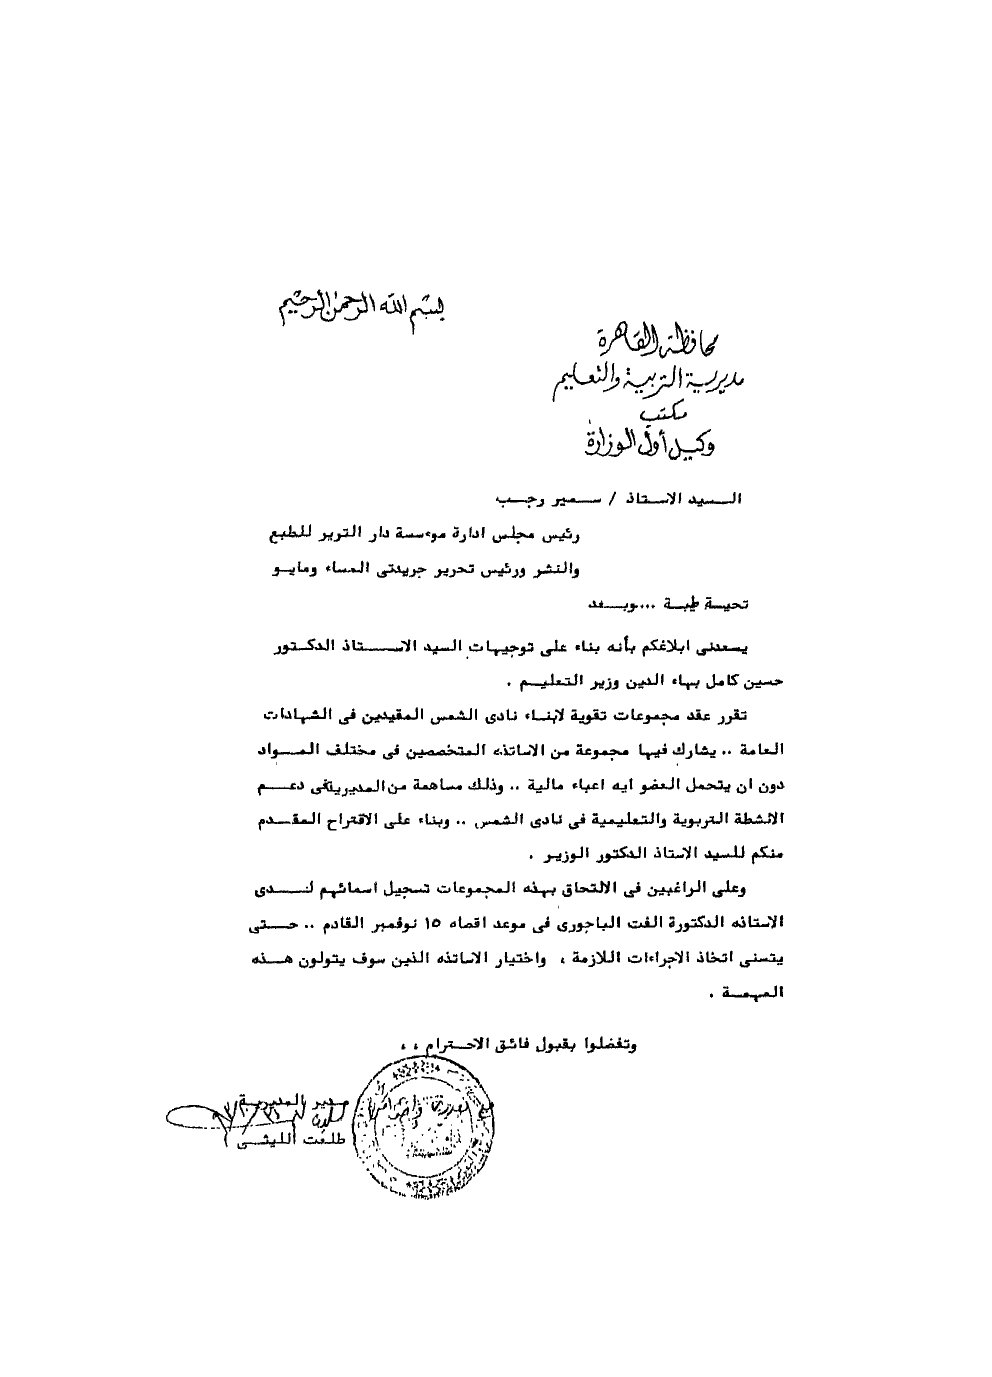 بسم الله الرحمن الرحيم
محافظة القاهرة
مديرية التربية والتعليم
مكتب
وكيل أول الوزارة
السيد الاستاذ / سمير رجب
رئيس مجلس ادارة موءسسة دار الترير للطبع
والنشر ورئيس تحرير جريدتى المساء ومايو
تحية طيبة ....وبعد
يسعدنى ابلاغكم بأنه بناء على توجيهات السيد الاستاذ الدكتور
حسين كامل بهاء الدين وزير التعليم .
تقرر عقد مجموعات تقوية لابناء نادى الشمس المقيدين فى الشهادات
العامة .. يشارك فيها مجموعة من الاساتذه المتخصصين فى مختلف المواد
دون ان يتحمل العضو ايه اعباء مالية .. وذلك مساهمة من المديريةفى دعم
الانشطة التربوية والتعليمية فى نادى الشمس .. وبناء على الاقتراح المقدم
منكم للسيد الاستاذ الدكتور الوزير .
وعلى الراغبين فى الالتحاق بهذه المجموعات تسجيل اسمائهم لدى
الاستاذه الدكتورة الفت الباجورى فى موعد اقصاه ١٥ نوفمبر القادم .. حتى
يتسنى اتخاذ الاجراءات اللازمة ، واختيار الاساتذه الذين سوف يتولون هذه
المهمة .
وتفضلوا بقبول فائق الاحترام ، ،
مدير المديرية
طلعت الليثى